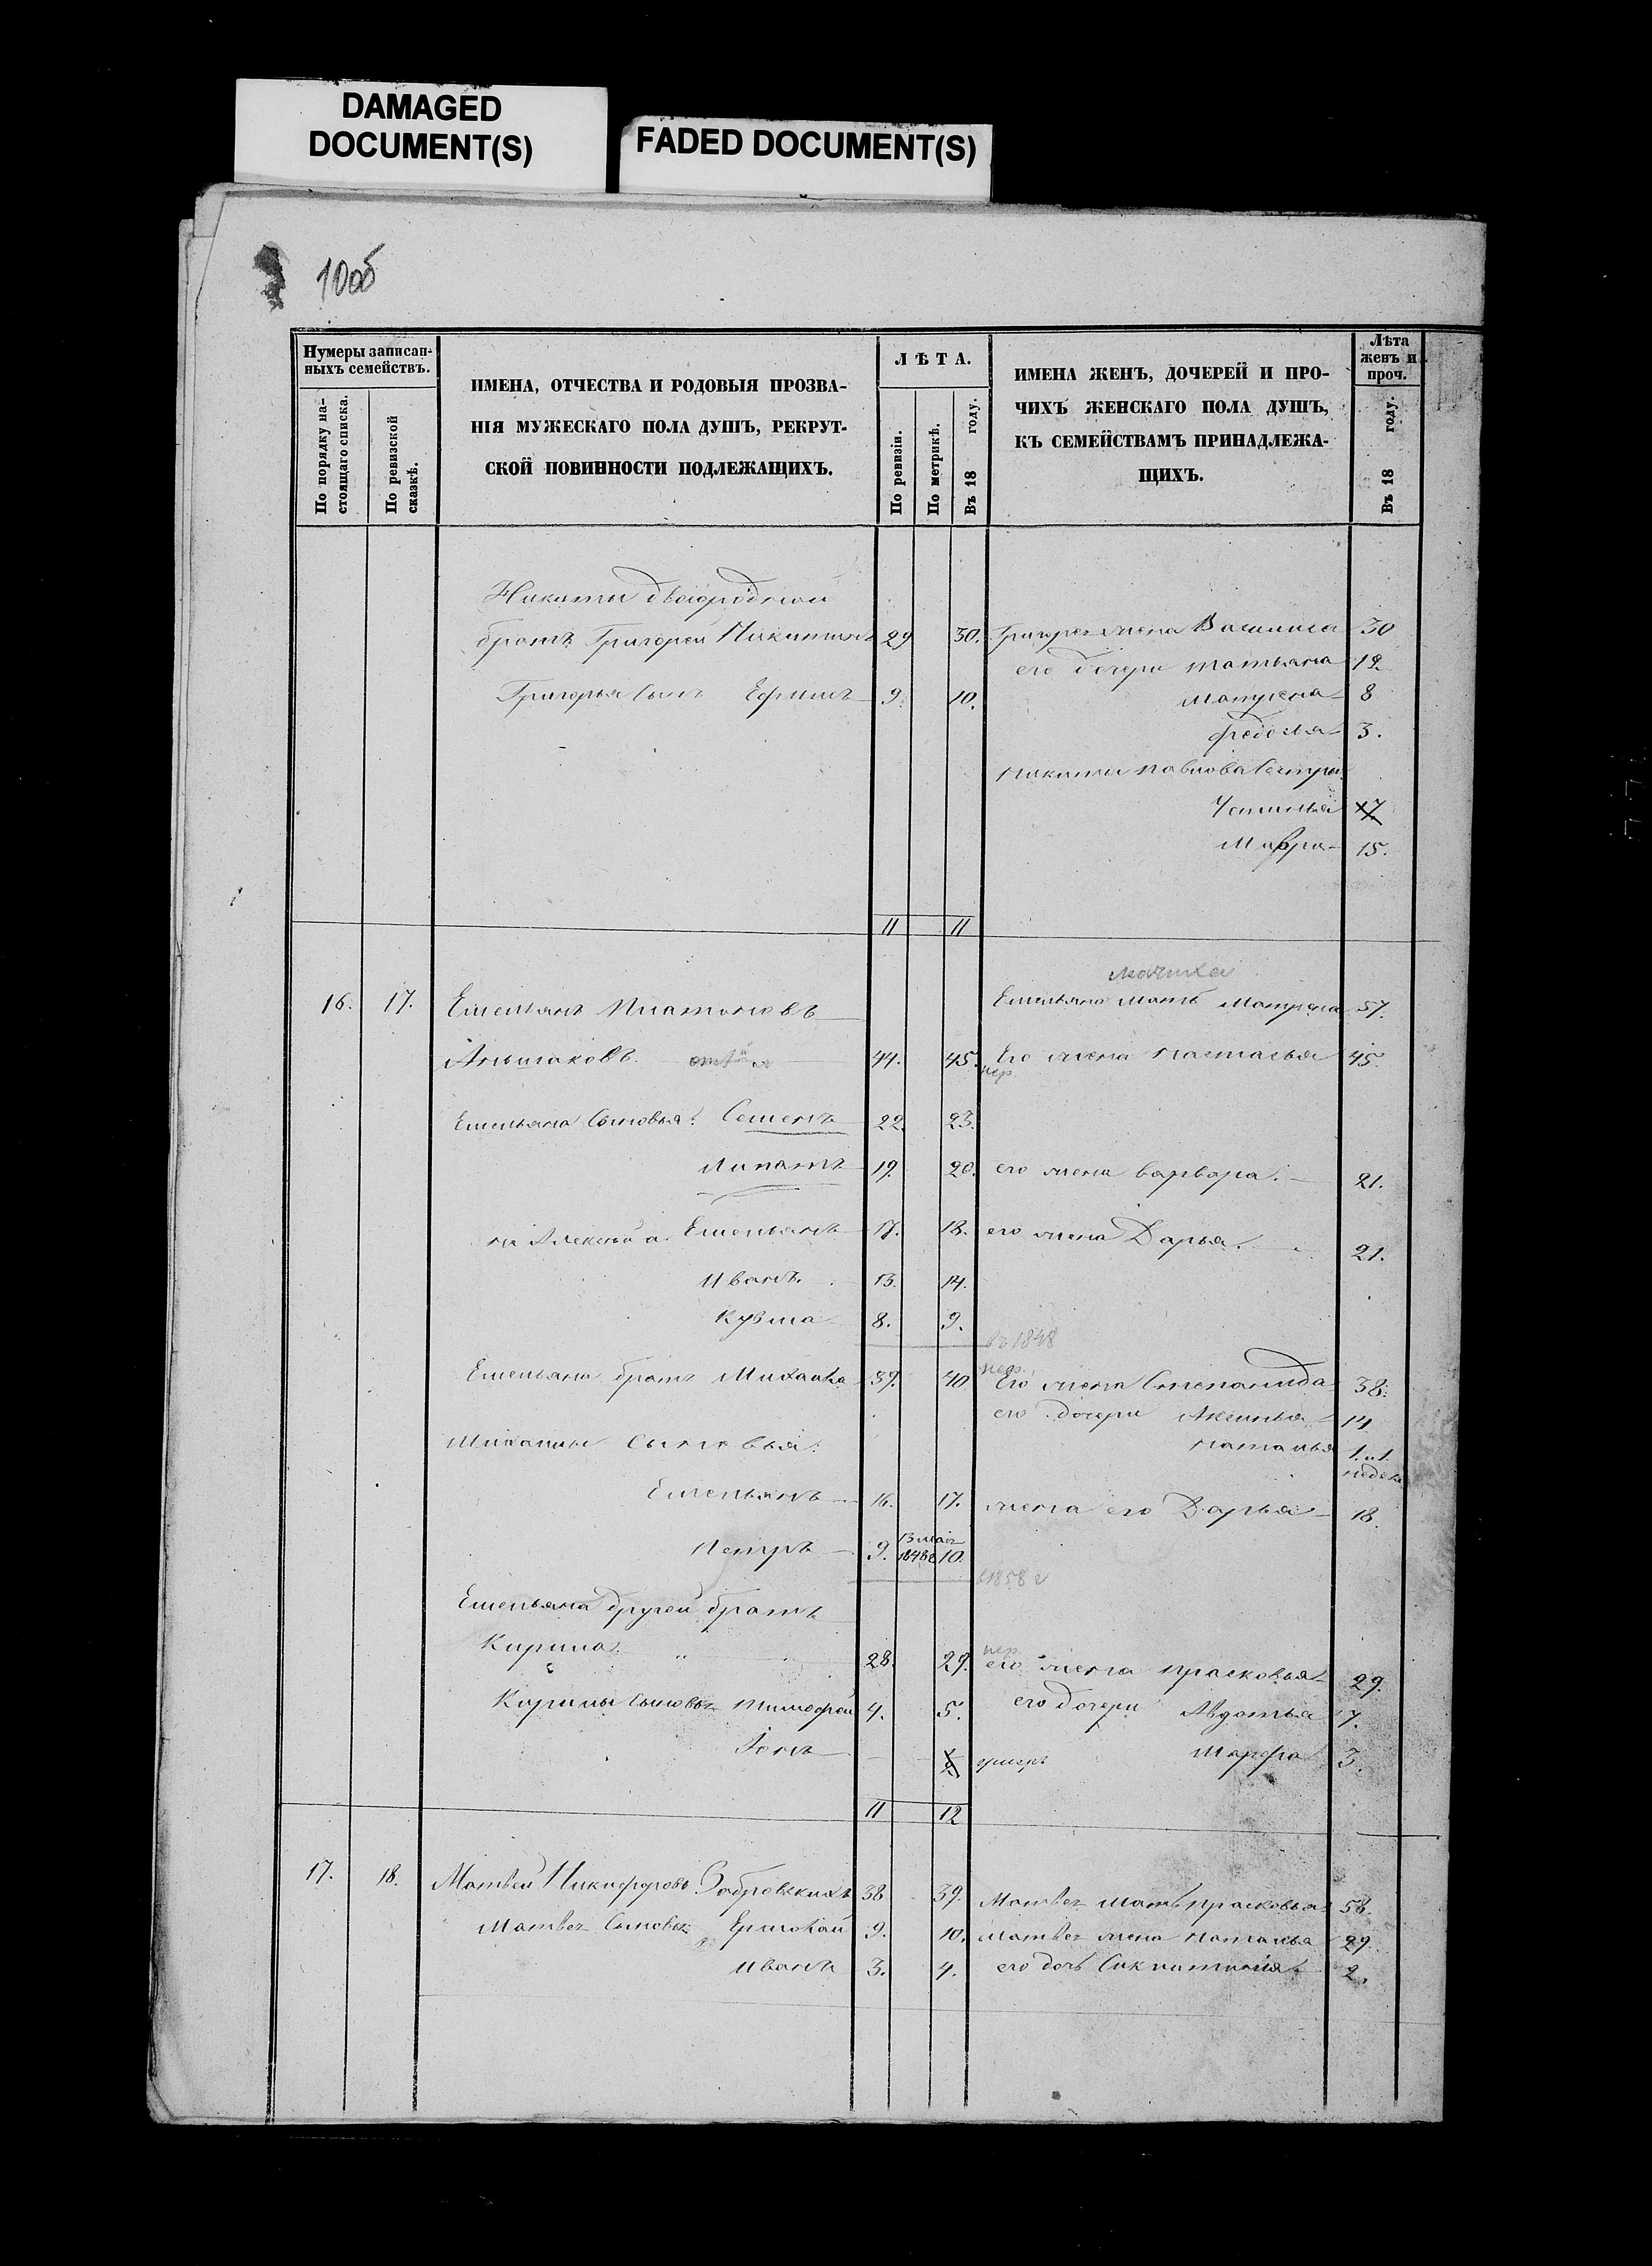 DAMAGED
DOCUMENT(S)
FADED DOCUMENT(S)
10об
Нумеры записан-
ныхъ семействъ.
По порядку на-
стоящаго списка.
По ревизской
сказкѣ.
ИМЕНА, ОТЧЕСТВА И РОДОВЫЯ ПРОЗВА-
НІЯ МУЖЕСКАГО ПОЛА ДУШЪ, РЕКРУТ-
СКОЙ ПОВИННОСТИ ПОДЛЕЖАЩИХЪ.
ЛѢТА.
По ревизіи.
По метрикѣ.
Въ 18 году.
ИМЕНА ЖЕНЪ, ДОЧЕРЕЙ И ПРО-
ЧИХЪ ЖЕНСКАГО ПОЛА ДУШЪ,
КЪ СЕМЕЙСТВАМЪ ПРИНАДЛЕЖА-
ЩИХЪ.
Лѣта
женъ и
проч.
Въ 18 году.
Никиты двоюродной
братъ Григорей Никитинъ 29 30. Григорея жена Василиса 30
его дочери Татьяна 12.
Григорья сынъ Ефимъ 9. 10. Матрена 8
Федосья 3.
Никиты Павлова сестры
Устинья 17
Мавра 15.
11 11
мачиха
16. 17. Емельянъ Платоновъ Емельяна мать Матрена 57.
44. 45. Его жена Настасья 45.
пер
Емельяна сыновья: Семенъ 22. 23.
Липатъ 19. 20. его жена Варвара. 21.
Емельянъ 17. 18. его жена Дарья. 21.
Иванъ. 13. 14.
Кузма 8. 9.
въ 1848
пер.
Емельяна братъ Михаила 39. 40 Его жена Степанида 38.
его дочери Аксинья 14
Михаилы сыновья: Наталья 1. и 1.
недели
Емельянъ 16. 17. жена его Дарья 18.
Петръ 9. 10.
1848
в 1858 г
Емельяна другой братъ
пер
Кирила 28. 29. его жена Прасковья 29.
Кирилы сыновья Тимофей 4. 5. его дочери Авдотья 7.
умеръ Марфа 3.
11 12
17. 18. Матвей Никифоровъ 38 39. Матвея мать Прасковья 58.
Матвея сыновья: Ермолай 9. 10. Матвея жена Наталья 29.
Иванъ 3. 4. его дочь 2.